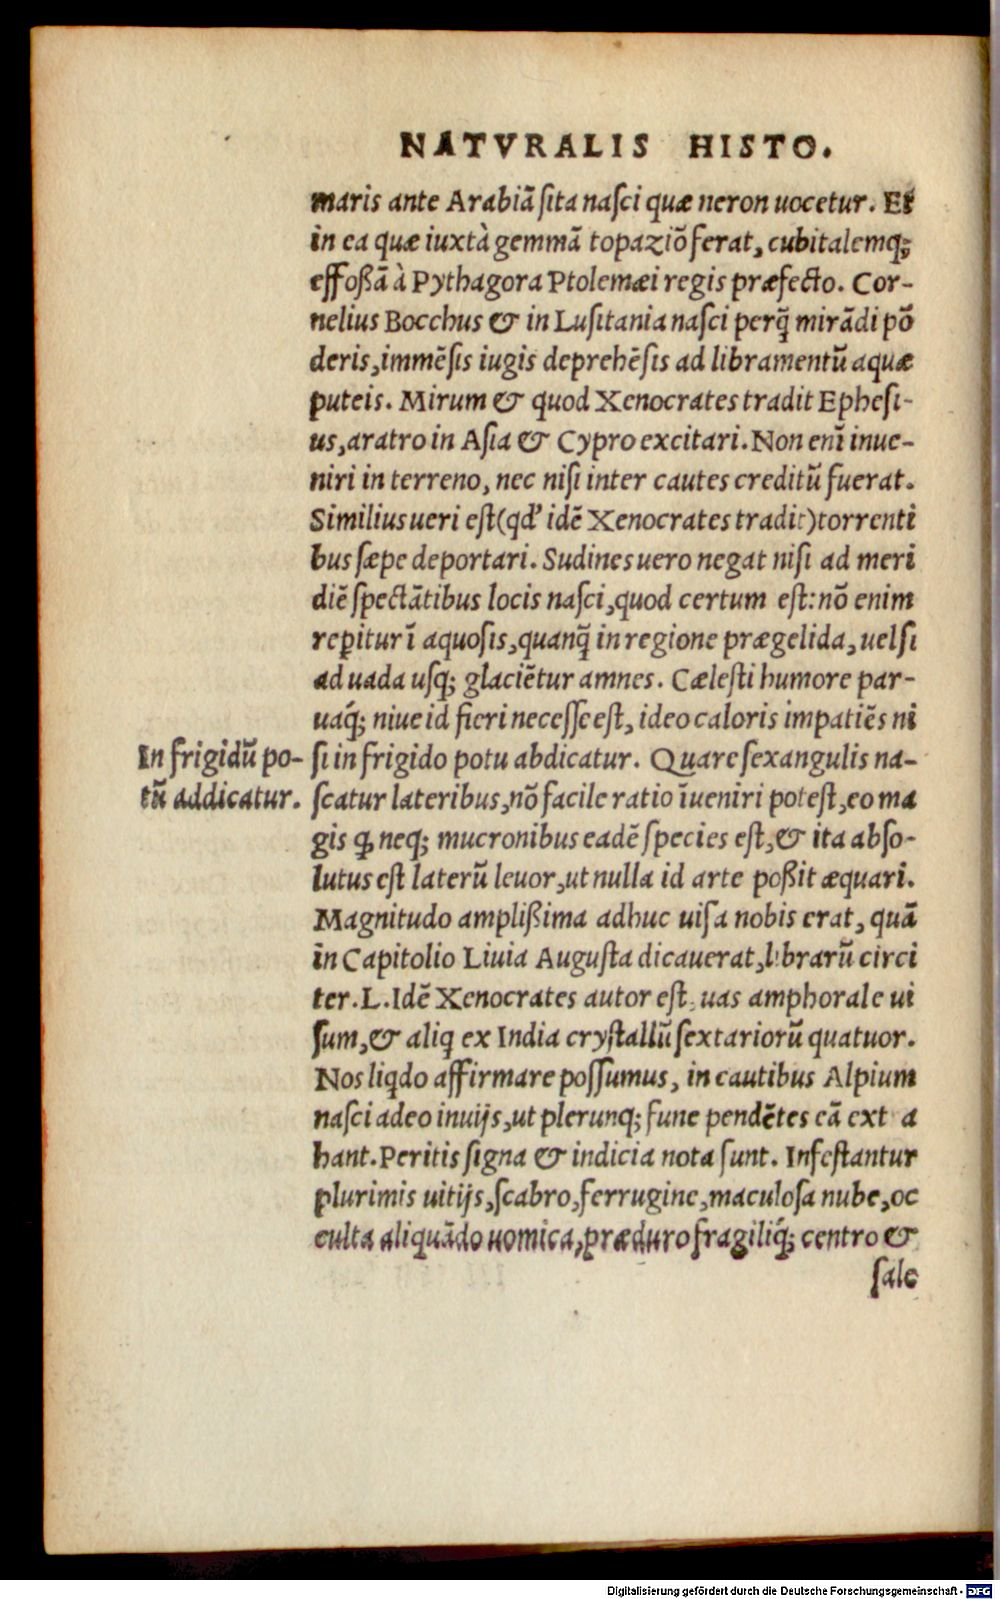 NATVRALIS HISTO.
maris ante Arabiā ſita naſci quæ neron uocetur. Et
in ea quæ iuxtà gemmā topaziō ferat, cubitalemq́;
effoßā à Pythagora Ptolemæi regis præfecto. Cor-
nelius Bocchus & in Luſitania naſci perq̄ mirādi pō
deris, immēſis iugis deprehēſis ad libramentū aquæ
puteis. Mirum & quod Xenocrates tradit Epheſi-
us, aratro in Aſia & Cypro excitari. Non enī inue-
niri in terreno, nec niſi inter cautes creditū fuerat.
Similius ueri eſt (qd' idē Xenocrates tradit) torrenti
bus ſæpe deportari. Sudines uero negat niſi ad meri
diē ſpectātibus locis naſci, quod certum eſt: nō enim
reꝑitur ī aquoſis, quanq̄ in regione prægelida, uel ſi
ad uada uſq; glaciētur amnes. Cæleſti humore par-
uaq́; niue id fieri neceſſe eſt, ideo caloris impatiēs ni
In frigidū po-
tū addicatur.
ſi in frigido potu abdicatur. Quare ſexangulis na-
ſcatur lateribus, nō facile ratio īueniri poteſt, eo ma
gis ꝙ neq; mucronibus eadē ſpecies eſt, & ita abſo-
lutus eſt laterū leuor, ut nulla id arte poßit æquari.
Magnitudo amplißima adhuc uiſa nobis erat, quā
in Capitolio Liuia Auguſta dicauerat, librarū circi
ter. L. Idē Xenocrates autor eſt, uas amphorale ui
ſum, & aliq̄ ex India cryſtallū ſextariorū quatuor.
Nos liq̇do affirmare poſſumus, in cautibus Alpium
naſci adeo inuijs, ut plerunq; fune pendētes eā ext a
hant. Peritis ſigna & indicia nota ſunt. Infeſtantur
plurimis uitijs, ſcabro, ferrugine, maculoſa nube, oc
culta aliquādo uomica, præduro fragiliq́; centro &
ſale
Digitalisierung gefördert durch die Deutsche Forschungsgemeinschaft - DFG